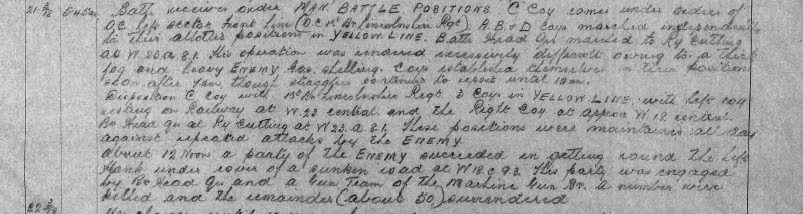 21-3/18 5-45am Battn receives order MAN BATTLE POSITIONS C Coy comes under orders of
O.C. Left Sector Front Line (O.C. 1st Bn Lincolnshire Regt). A. B & D Coys marched independently
to their allotted positions in YELLOW LINE. Battn Head Qrs marched to Ry Cutting
at W.23.a.8.1. This operation was rendered excessively difficult owing to a thick
fog and heavy ENEMY Gas shelling. Coys established themselves in their position
soon after 7am, though stragglers continued to report until 10am.
Disposition C Coy with 1st Bn Lincolnshire Regt. 3 Coys in YELLOW LINE with left coy
resting on Railway at W.23 central and the Right Coy at approx W.18 central
Bn Head Qrs at Ry Cutting at W23.a.8.1. These positions were maintained all day
against repeated attacks by the ENEMY.
About 12 Noon a party of the ENEMY succeeded in getting round the left
flank under cover of a sunken road at W18.c.9.3. This party was engaged
by Bn Head Qrs and a Gun Team of the Machine Gun Bn. A number were
killed and the remainder (about 50) surrendered
22-3/18